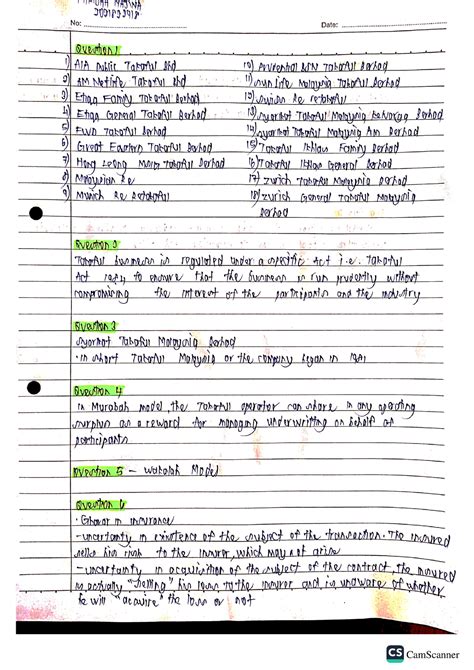 No:
Date:
Question 1
1) AIA Public Takaful Bhd
2) AM Metlife Takaful Bhd
3) Etiqa Family Takaful Berhad
4) Etiqa General Takaful Berhad
5) FWD Takaful Berhad
6) Great Eastern Takaful Berhad
7) Hong Leong MSIG Takaful Berhad
8) Malaysian Re
9) Munich Re Retakaful
10) Prudential BSN Takaful Berhad
11) Sun life Malaysia Takaful Berhad
12) Swiss Re retakaful
13) Syarikat Takaful Malaysia Keluarga Berhad
14) Syarikat Takaful Malaysia Am Berhad
15) Takaful Ikhlas Family Berhad
16) Takaful Ikhlas General Berhad
17) Zurich Takaful Malaysia Berhad
18) Zurich General Takaful Malaysia
Berhad
Question 2
Takaful business is regulated under a specific Act i.e. Takaful
Act 1984 to ensure that the business is run prudently without
compromising the interest of the participants and the industry
Question 3
Syarikat Takaful Malaysia Berhad
• In short Takaful Malaysia or the company began in
Question 4
In Murabah model, the Takaful operator can share in any operating
surplus as a reward for managing underwriting on behalf of
participants
Question 5 – Wakalah Model
Question 6
• Gharar in insurance
- uncertainty in existence of the subject of the transaction. The insured
sells his risk to the insurer, which may not arise
- uncertainty in acquisition of the subject of the contract, the insured
is actually "selling" his loss to the insurer and is unaware of whether
he will "acquire" the loss or not
CS CamScanner